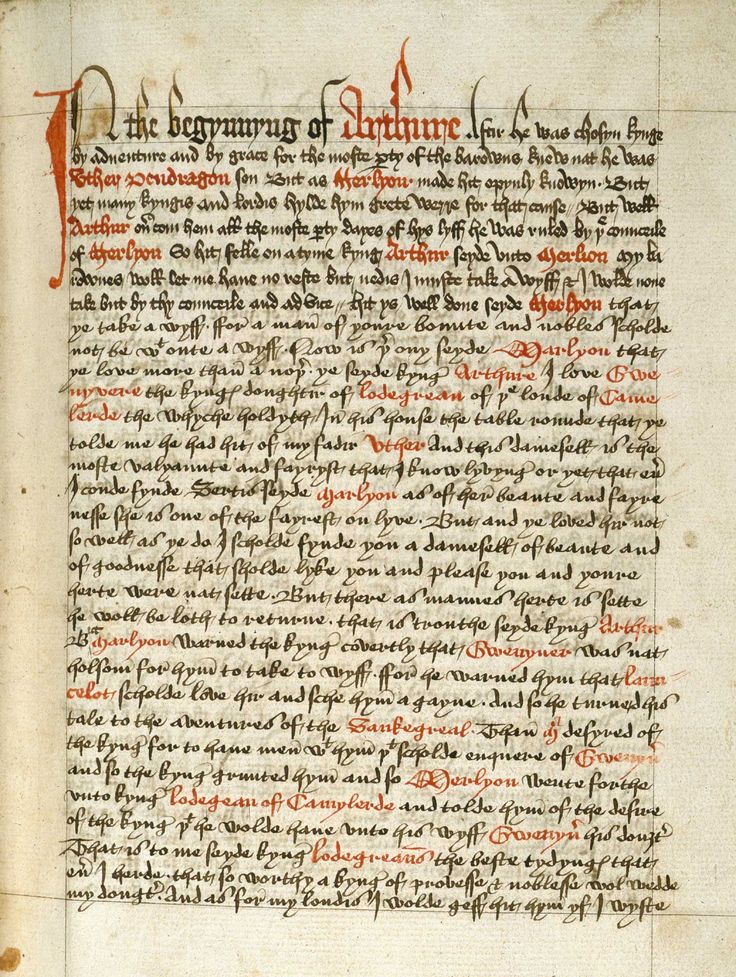 IN the begynnyng of Arthure. Aftir he was chosyn kynge
by adventure and by grace for the moste pty of the barowns knew nat he was
Uther Pendragon son But as Merlyon made hit opynly knowyn. But
yet many kyngis and lordis hylde hym grete werre for that cause. But well
Arthur ov͛com hem all the moste pty dayes of hys lyff he was ruled by yͤ counceile
of Merlyon So hit felle on a tyme kyng Arthur seyde unto Merlion My ba
rownes woll let me have no reste but nedis I muste take a wyff & I wolde none
take but by thy counceile and advice hit ys well done seyde Merlyon that
ye take a wyff. ffor a man of youre bounte and nobles scholde
not be wͭ oute a wyff. Now is þ͛ ony seyde Marlyon that
ye love more than a noþ͛. ye seyde kyng Arthure I love Gwe
nyvere the kyngꝭ doughtir of lodegrean of þͤ londe of Came
lerde the whyche holdyth In his house the table rounde that ye
tolde me he had hit of my fadir Uther And this damesell is the
moste valyaunte and fayryst that I know lyvyng or yet that eu͛
I coude fynde Sertis seyde Marlyon as of her beaute and fayre
nesse she is one of the fayrest on lyve. But and ye loved hir not
so well as ye do I scholde fynde you a damesell of beaute and
of goodnesse that sholde lyke you and please you and youre
herte were nat sette. But there as mannes herte is sette
he woll be loth to returne. that is trouthe seyde kyng Arthur
Bͭ Marlyon warned the kyng covertly that Gwenyuer was nat
holsom for hym to take to wyff. ffor he warned hym that laun
celot scholde love hir and sche hym a gayne. And so he turned his
tale to the aventures of the Sankegreal. Than Mͭ desyred of
the kyng for to have men wͭ hym þͭ scholde enquere of Gwenyu͛
and so the kyng graunted hym and so Merlyon wente forthe
unto kyng lodegean of Camylerde and tolde hym of the desire
of the kyng þͭ he wolde have unto his wyff Gwenyu͛ his douȝt͛
That is to me seyde kyng lodegreauns the beste tydyngꝭ that
eu͛ I herde. that so worthy a kyng of prouesse & noblesse wol wedde
my dougt͛. And as for my londis I wolde geff hit hym yf I wyste